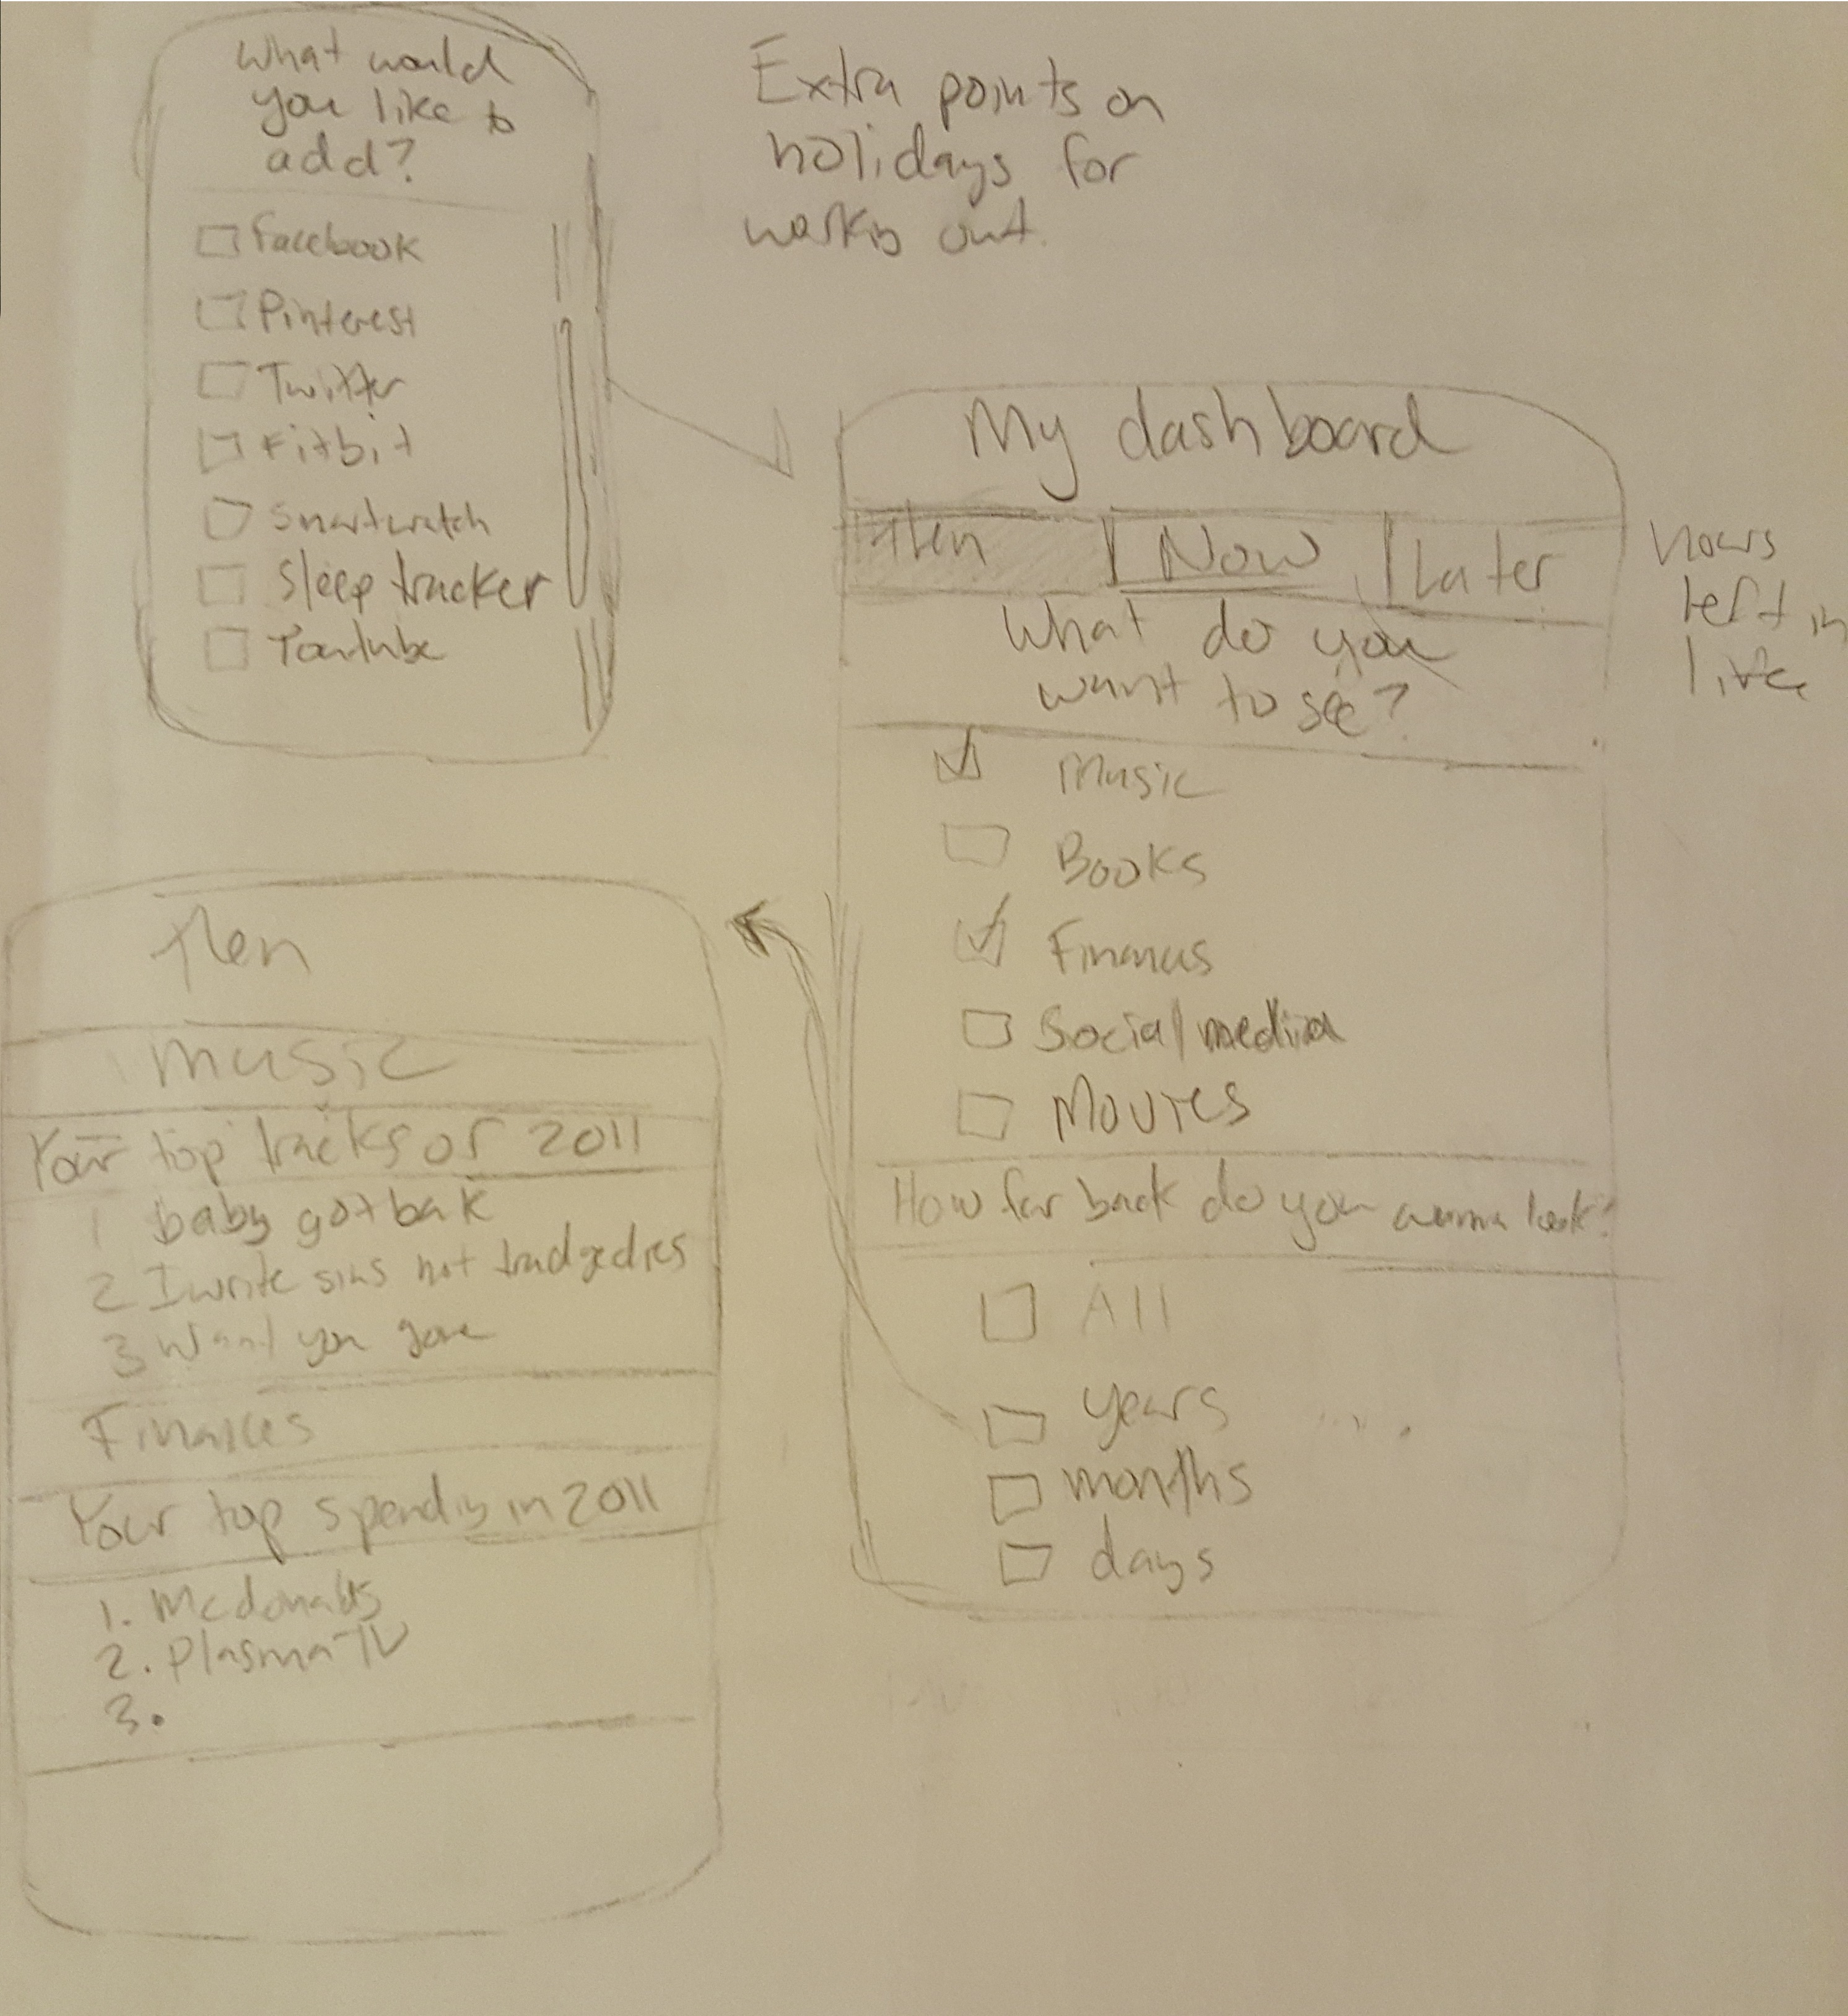 What would
you like to
add?
Facebook
Pinterest
Twitter
Fitbit
Smartwatch
Sleep tracker
Youtube
Extra points on
holidays for
out.
My dashboard
Then | Now | Later
What do you
want to see?
Music
Books
Social media
Movies
How far back do you wanna look?
All
years
months
days
hours
left in
life
Then
music
Your top tracks of 2011
1 baby got bak
2 I write sins not tradgedies
3 Want you gone
Finances
Your top in 2011
1. Mcdonalds
2. Plasma TV
3.